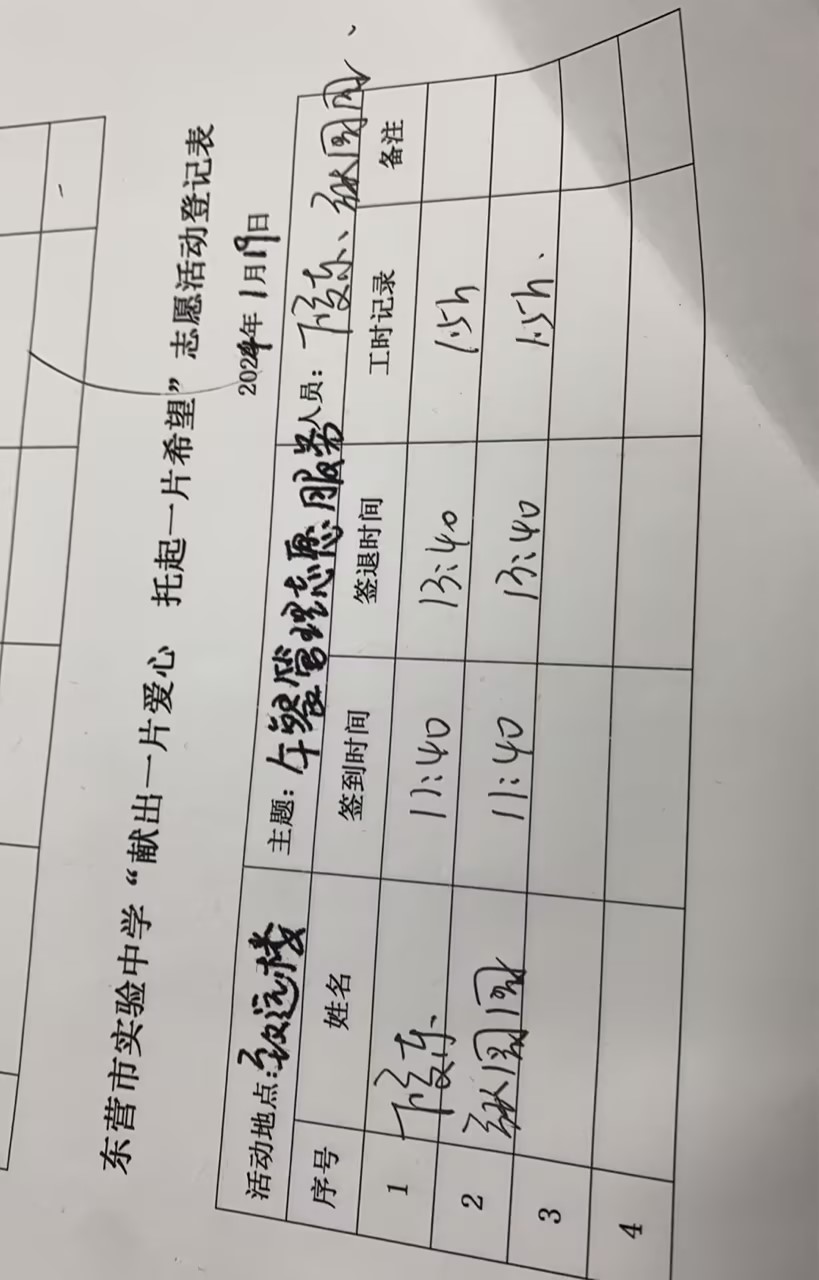 东营市实验中学“献出一片爱心 托起一片希望”志愿活动登记表
2024年1月19日
活动地点：致远楼 主题：午餐管理志愿服务 人员：
序号 姓名 签到时间 签退时间 工时记录 备注
1 11:40 13:40 1.5h
2 11:40 13:40 1.5h.
3
4